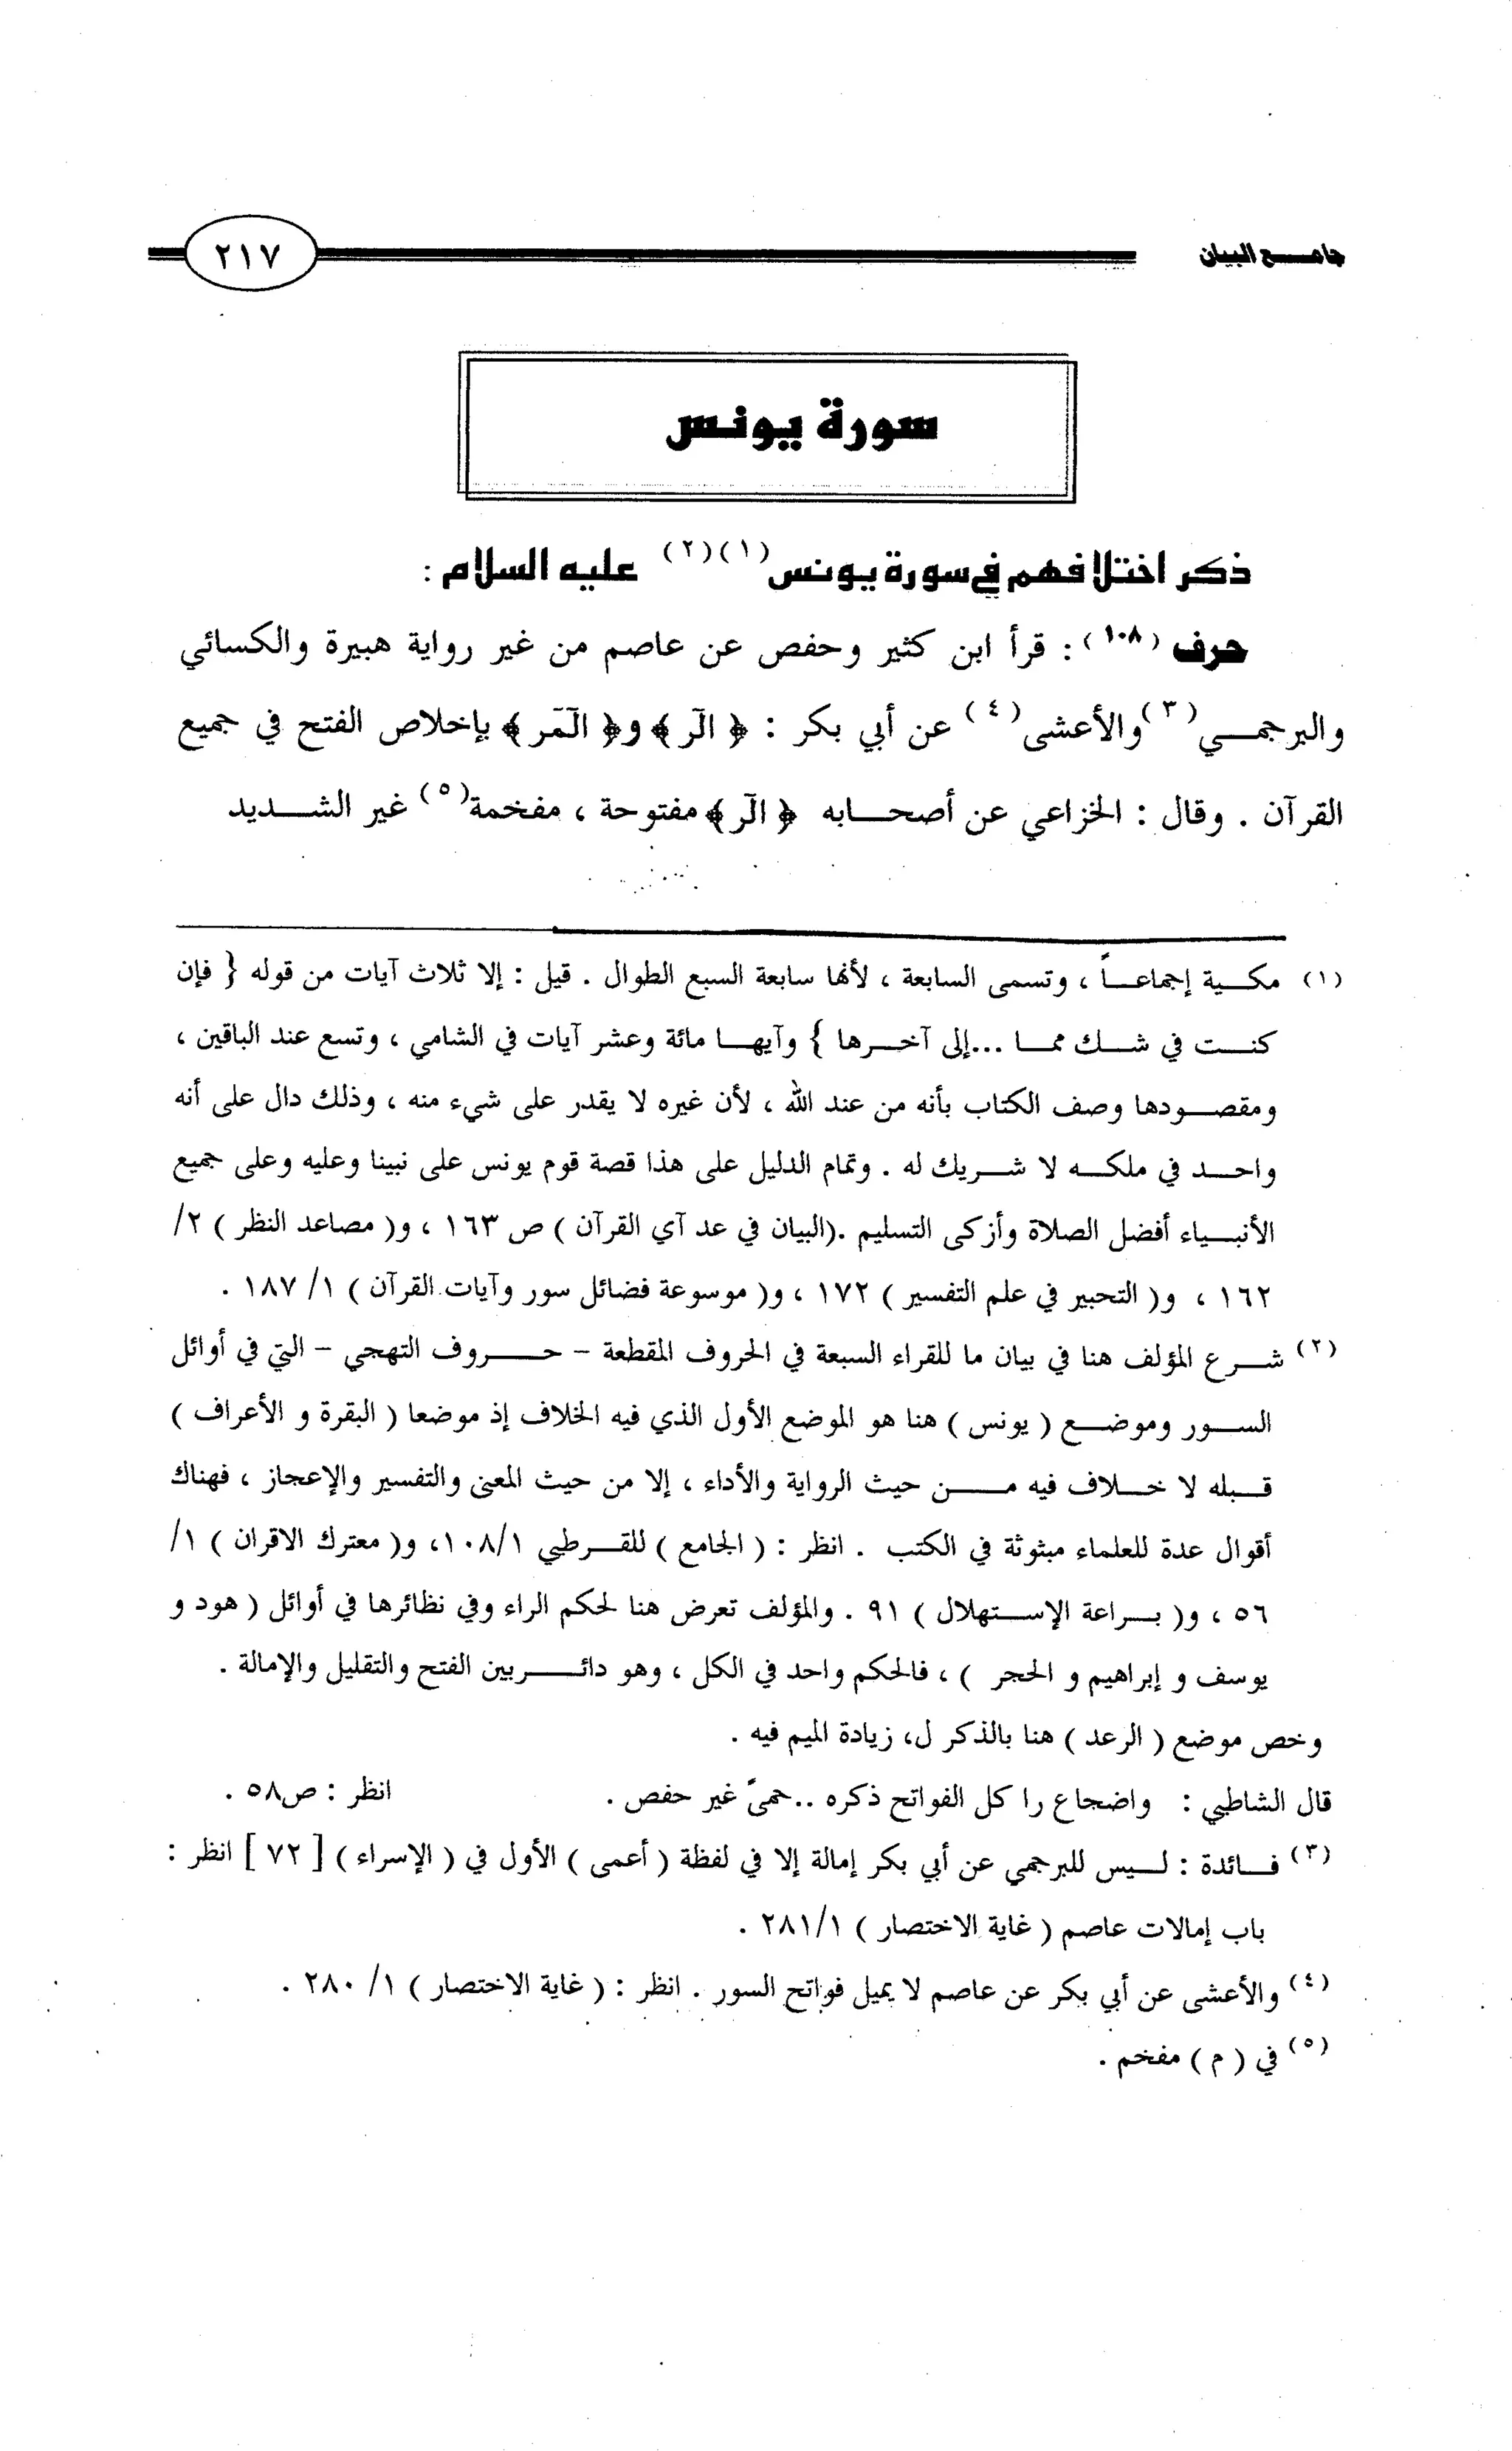 جامع البيان
٢١٧
سورة يونس
ذكر اختلافهم في سورة يونس(١)(٢) عليه السلام :
حرف (١٠٨) : قرأ ابن كثير وحفص عن عاصم من غير رواية هبيرة والكسائي
والبرجمي(٣) والأعشى(٤) عن أبي بكر : ﴿ الٓر ﴾ و﴿ الٓمٓر ﴾ بإخلاص الفتح في جميع
القرآن . وقال : الخزاعي عن أصحابه ﴿ الٓر ﴾ مفتوحة ، مفخمة(٥) غير الشديد
(١) مكية إجماعاً ، وتسمى السابعة ، لأنها سابعة السبع الطوال . قيل : إلا ثلاث آيات من قوله { فإن
كنت في شك مما ...إلى آخرها } وآيها مائة وعشر آيات في الشامي ، وتسع عند الباقين ،
ومقصودها وصف الكتاب بأنه من عند الله ، لأن غيره لا يقدر على شيء منه ، وذلك دال على أنه
واحد في ملكه لا شريك له . وتمام الدليل على هذا قصة قوم يونس على نبينا وعليه وعلى جميع
الأنبياء أفضل الصلاة وأزكى التسليم .(البيان في عد آي القرآن ) ص ١٦٣ ، و( مصاعد النظر ) ٢/
١٦٢ ، و( التحبير في علم التفسير ) ١٧٢ ، و( موسوعة فضائل سور وآيات القرآن ) ١/ ١٨٧ .
(٢) شرع المؤلف هنا في بيان ما للقراء السبعة في الحروف المقطعة - حروف التهجي - التي في أوائل
السور وموضع ( يونس ) هنا هو الموضع الأول الذي فيه الخلاف إذ موضعا ( البقرة و الأعراف )
قبله لا خلاف فيه من حيث الرواية والأداء ، إلا من حيث المعنى والتفسير والإعجاز ، فهناك
أقوال عدة للعلماء مبثوثة في الكتب . انظر : ( الجامع ) للقرطبي ١٠٨/١، و( معترك الاقران ) ١/
٥٦ ، و( براعة الإستهلال ) ٩١ . والمؤلف تعرض هنا لحكم الراء وفي نظائرها في أوائل ( هود و
يوسف و إبراهيم و الحجر ) ، فالحكم واحد في الكل ، وهو دائر بين الفتح والتقليل والإمالة .
وخص موضع ( الرعد ) هنا بالذكر ل، زيادة الميم فيه .
قال الشاطبي : واضجاع را كل الفواتح ذكره .. حمىً غير حفص . انظر : ص٥٨ .
(٣) فائدة : ليس للبرجمي عن أبي بكر إمالة إلا في لفظة ( أعمى ) الأول في ( الإسراء ) [ ٧٢ ] انظر :
باب إمالات عاصم ( غاية الاختصار ) ٢٨١/١ .
(٤) والأعشى عن أبي بكر عن عاصم لا يميل فواتح السور . انظر : ( غاية الاختصار ) ١/ ٢٨٠ .
(٥) في ( م ) مفخم .